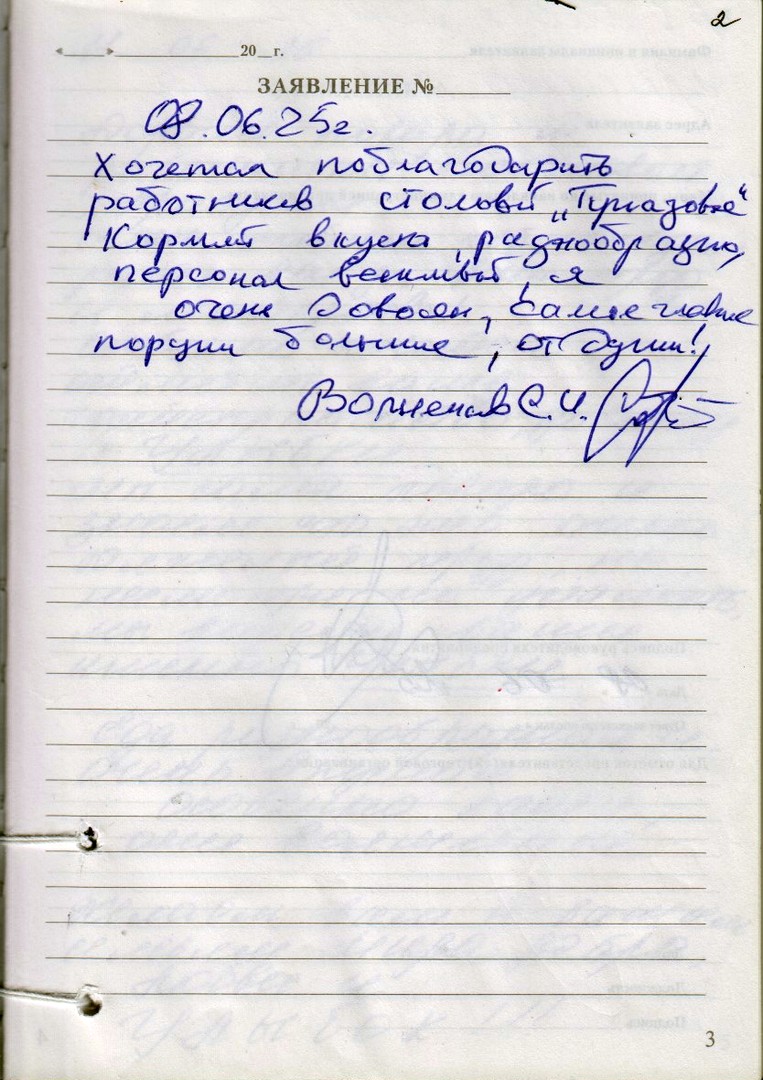 2
« » 20 г.
ЗАЯВЛЕНИЕ №
08.06.25г.
Хочется поблагодарить
работников столовой
Кормят вкусно, разнообразно,
персонал вежливый, я
очень доволен, самые главные
порции большие, от души!
С.И.
3